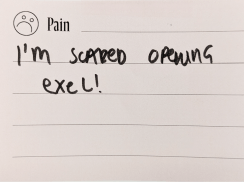 Pain
I'm SCARED OPENING
EXEL!